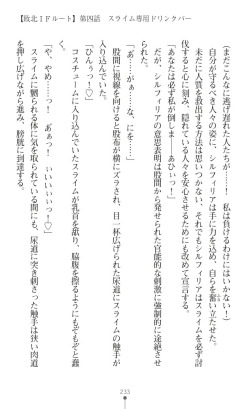 【敗北ＩＦルート】第四話　スライム専用ドリンクバー
（まだこんなに残された人たちが……！　私は負けるわけにはいかない！）
　自分が守るべき人々の姿に、シルフィリアは手に力を込め、自らを奮い立たせた。
　未だに人質を救出する方法は思いつかない、それでもシルフィリアはスライムを必ず討
つと心に刻み、隠れている人々を安心させるためにも改めて宣言する。
「あなたは必ず私が倒しま――あひぃっ！」
　だが、シルフィリアの意思表明は股間から発せられた官能的な刺激に強制的に途絶させ
られる。
「あ゛ぁっ……な、にを……！」
　股間に視線を向けると股布が横にズラされ、目一杯広げられた尿道にスライムの触手が
入り込んでいた。
「ひんぅっ！♡」
　コスチュームに入り込んでいたスライムが乳首を舐り、脇腹を擦るようにもぞもぞと蠢
く。
「や、やめ……っ！　あぁっ！　ぃぃぃぃぃぃぅ！♡」
　スライムに嬲られる体に気を取られている間にも、尿道に突き刺さった触手は狭い肉道
を押し広げながら進み、膀胱に到達する。
233